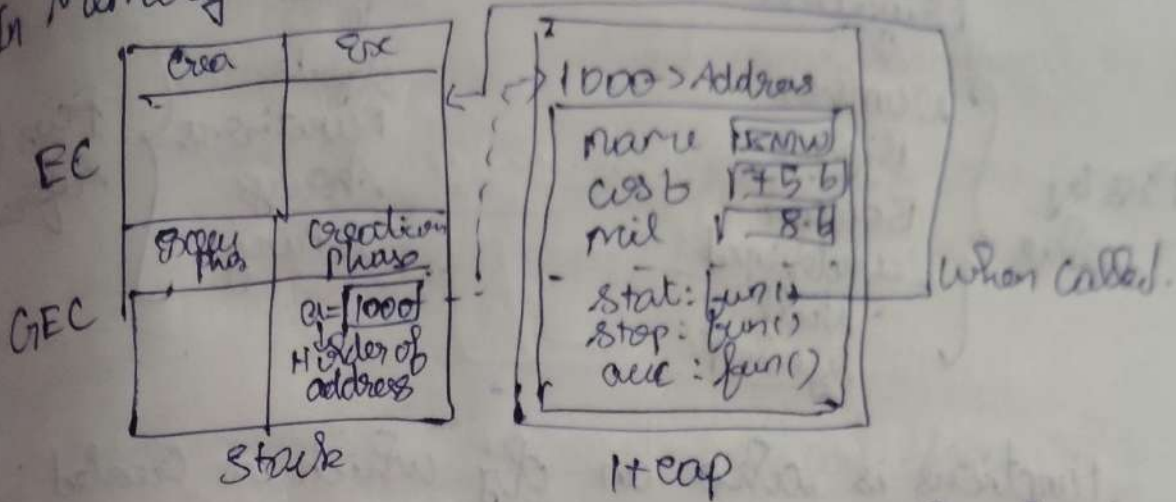 In Memory
Crea Ex
EC
Execu phas
Creation phase
GEC
a = 1000
Holder of address
Stack
1000 > Address
name BMW
cost 75.6
mil 8.4
stat: fun()
stop: fun()
acc: fun()
When called.
Heap